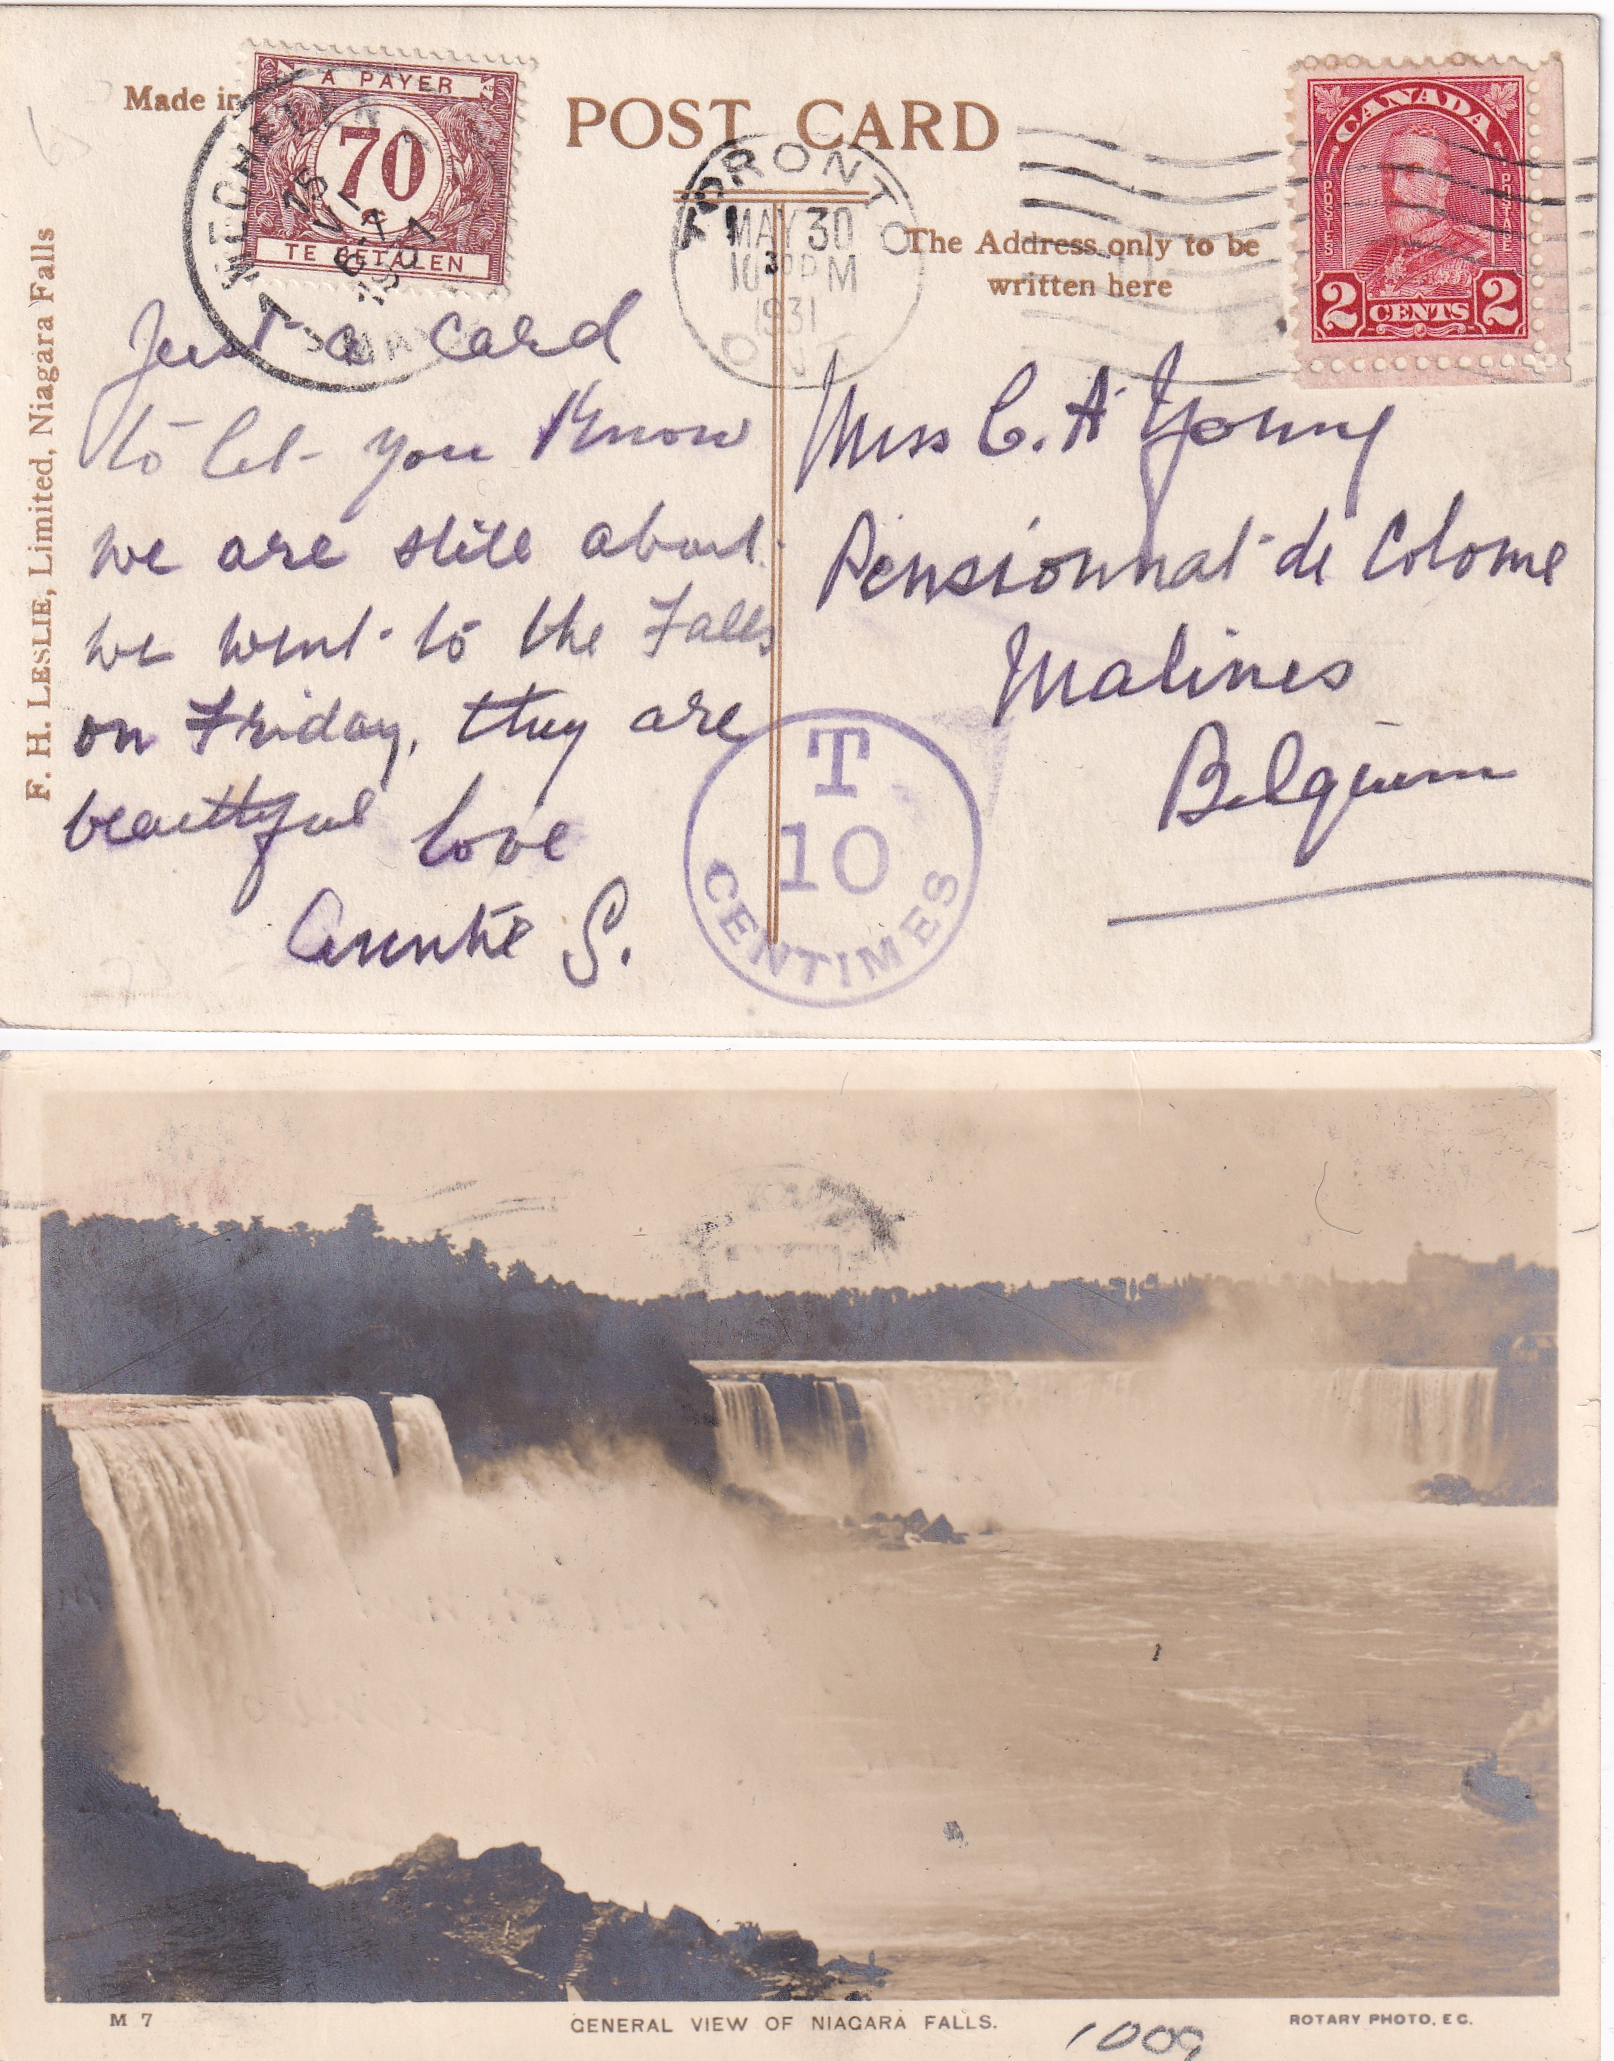 Made in
POST CARD
A PAYER
70
TE BETALEN
MECHELEN
TORONTO
MAY 30
1931
ONT
CANADA
POSTES
POSTAGE
2 CENTS 2
The Address only to be
written here
F. H. LESLIE, Limited, Niagara Falls
Just a card
to let you know
we are still about.
we went to the Falls
on Friday, they are
beautiful love
Auntie S.
Miss C. A Young
Pensionnat de Colome
Malines
Belgium
T
10
CENTIMES
M 7
GENERAL VIEW OF NIAGARA FALLS.
ROTARY PHOTO, E.C.
1009